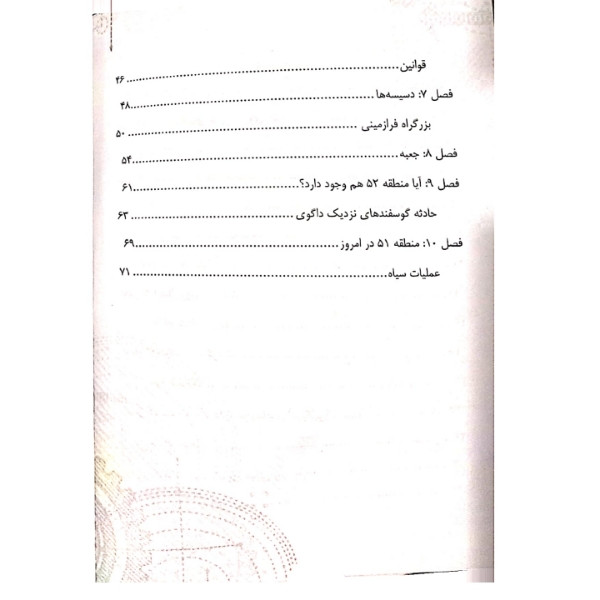 قوانین ........ ۴۶
فصل ۷: دسیسه‌ها ........ ۴۸
بزرگراه فرازمینی ........ ۵۰
فصل ۸: جعبه ........ ۵۴
فصل ۹: آیا منطقه ۵۲ هم وجود دارد؟ ........ ۶۱
حادثه گوسفندهای نزدیک داگوی ........ ۶۳
فصل ۱۰: منطقه ۵۱ در امروز ........ ۶۹
عملیات سیاه ........ ۷۱